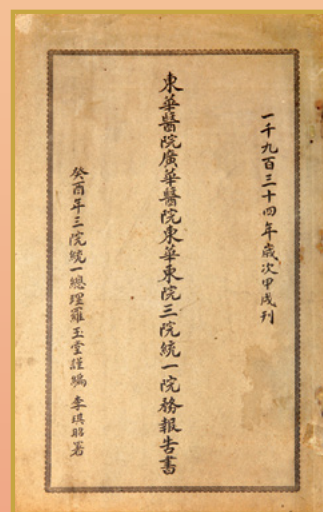 一千九百三十四年歲次甲戌刊
東華醫院廣華醫院東華東院三院統一院務報告書
癸酉年三院統一總理羅玉堂謹編 李琪昭署